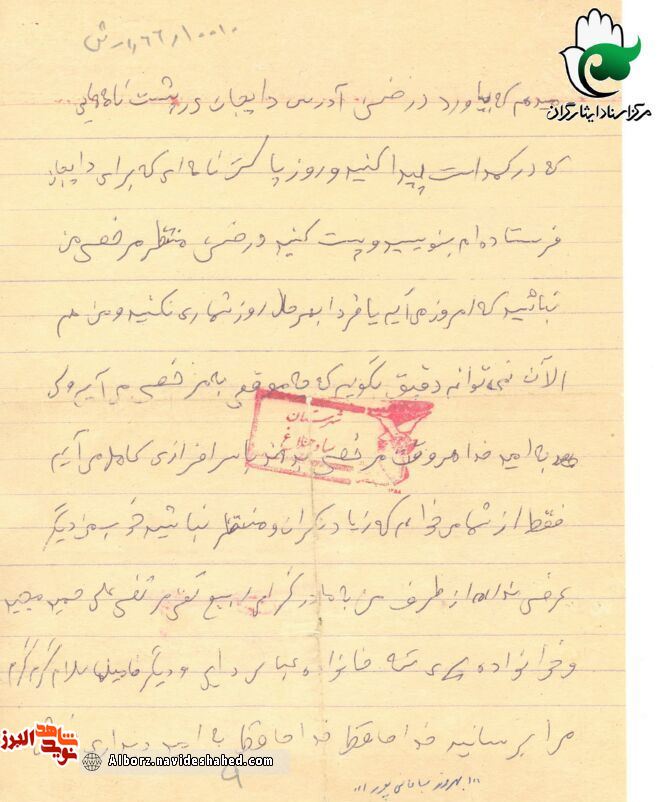 میدهم که بیاورد در ضمن آدرس دایجان در پشت نامه‌هایی
که در کمد است پیدا کنید و روز پاکت نامه‌ای که برای دایجان
فرستاده‌ام بنویسید و پست کنید در ضمن منتظر مرخصی من
نباشید که امروز می‌آیم یا فردا بهرحال روزشماری نکنید و من هم
الآن نمی‌توانم دقیق بگویم که چه موقعی به مرخصی می‌آیم ولی
به امید خدا هر وقت مرخصی بدهند با سرافرازی کامل می‌آیم
فقط از شما می‌خواهم که زیاد نگران و منتظر نباشید خوب من دیگر
عرضی ندارم از طرف من به مادر گرامی ربیع تقی مرتضی علی حمید مجید
و خانواده خانواده عباس دایی و دیگر فامیلها سلام گرم گرم
مرا برسانید خدا حافظ خدا حافظ به امید دیداری
بهروز پور
شهرستان
مرکز اسناد ایثارگران
نوید شاهد البرز
Alborz.navideshahed.com